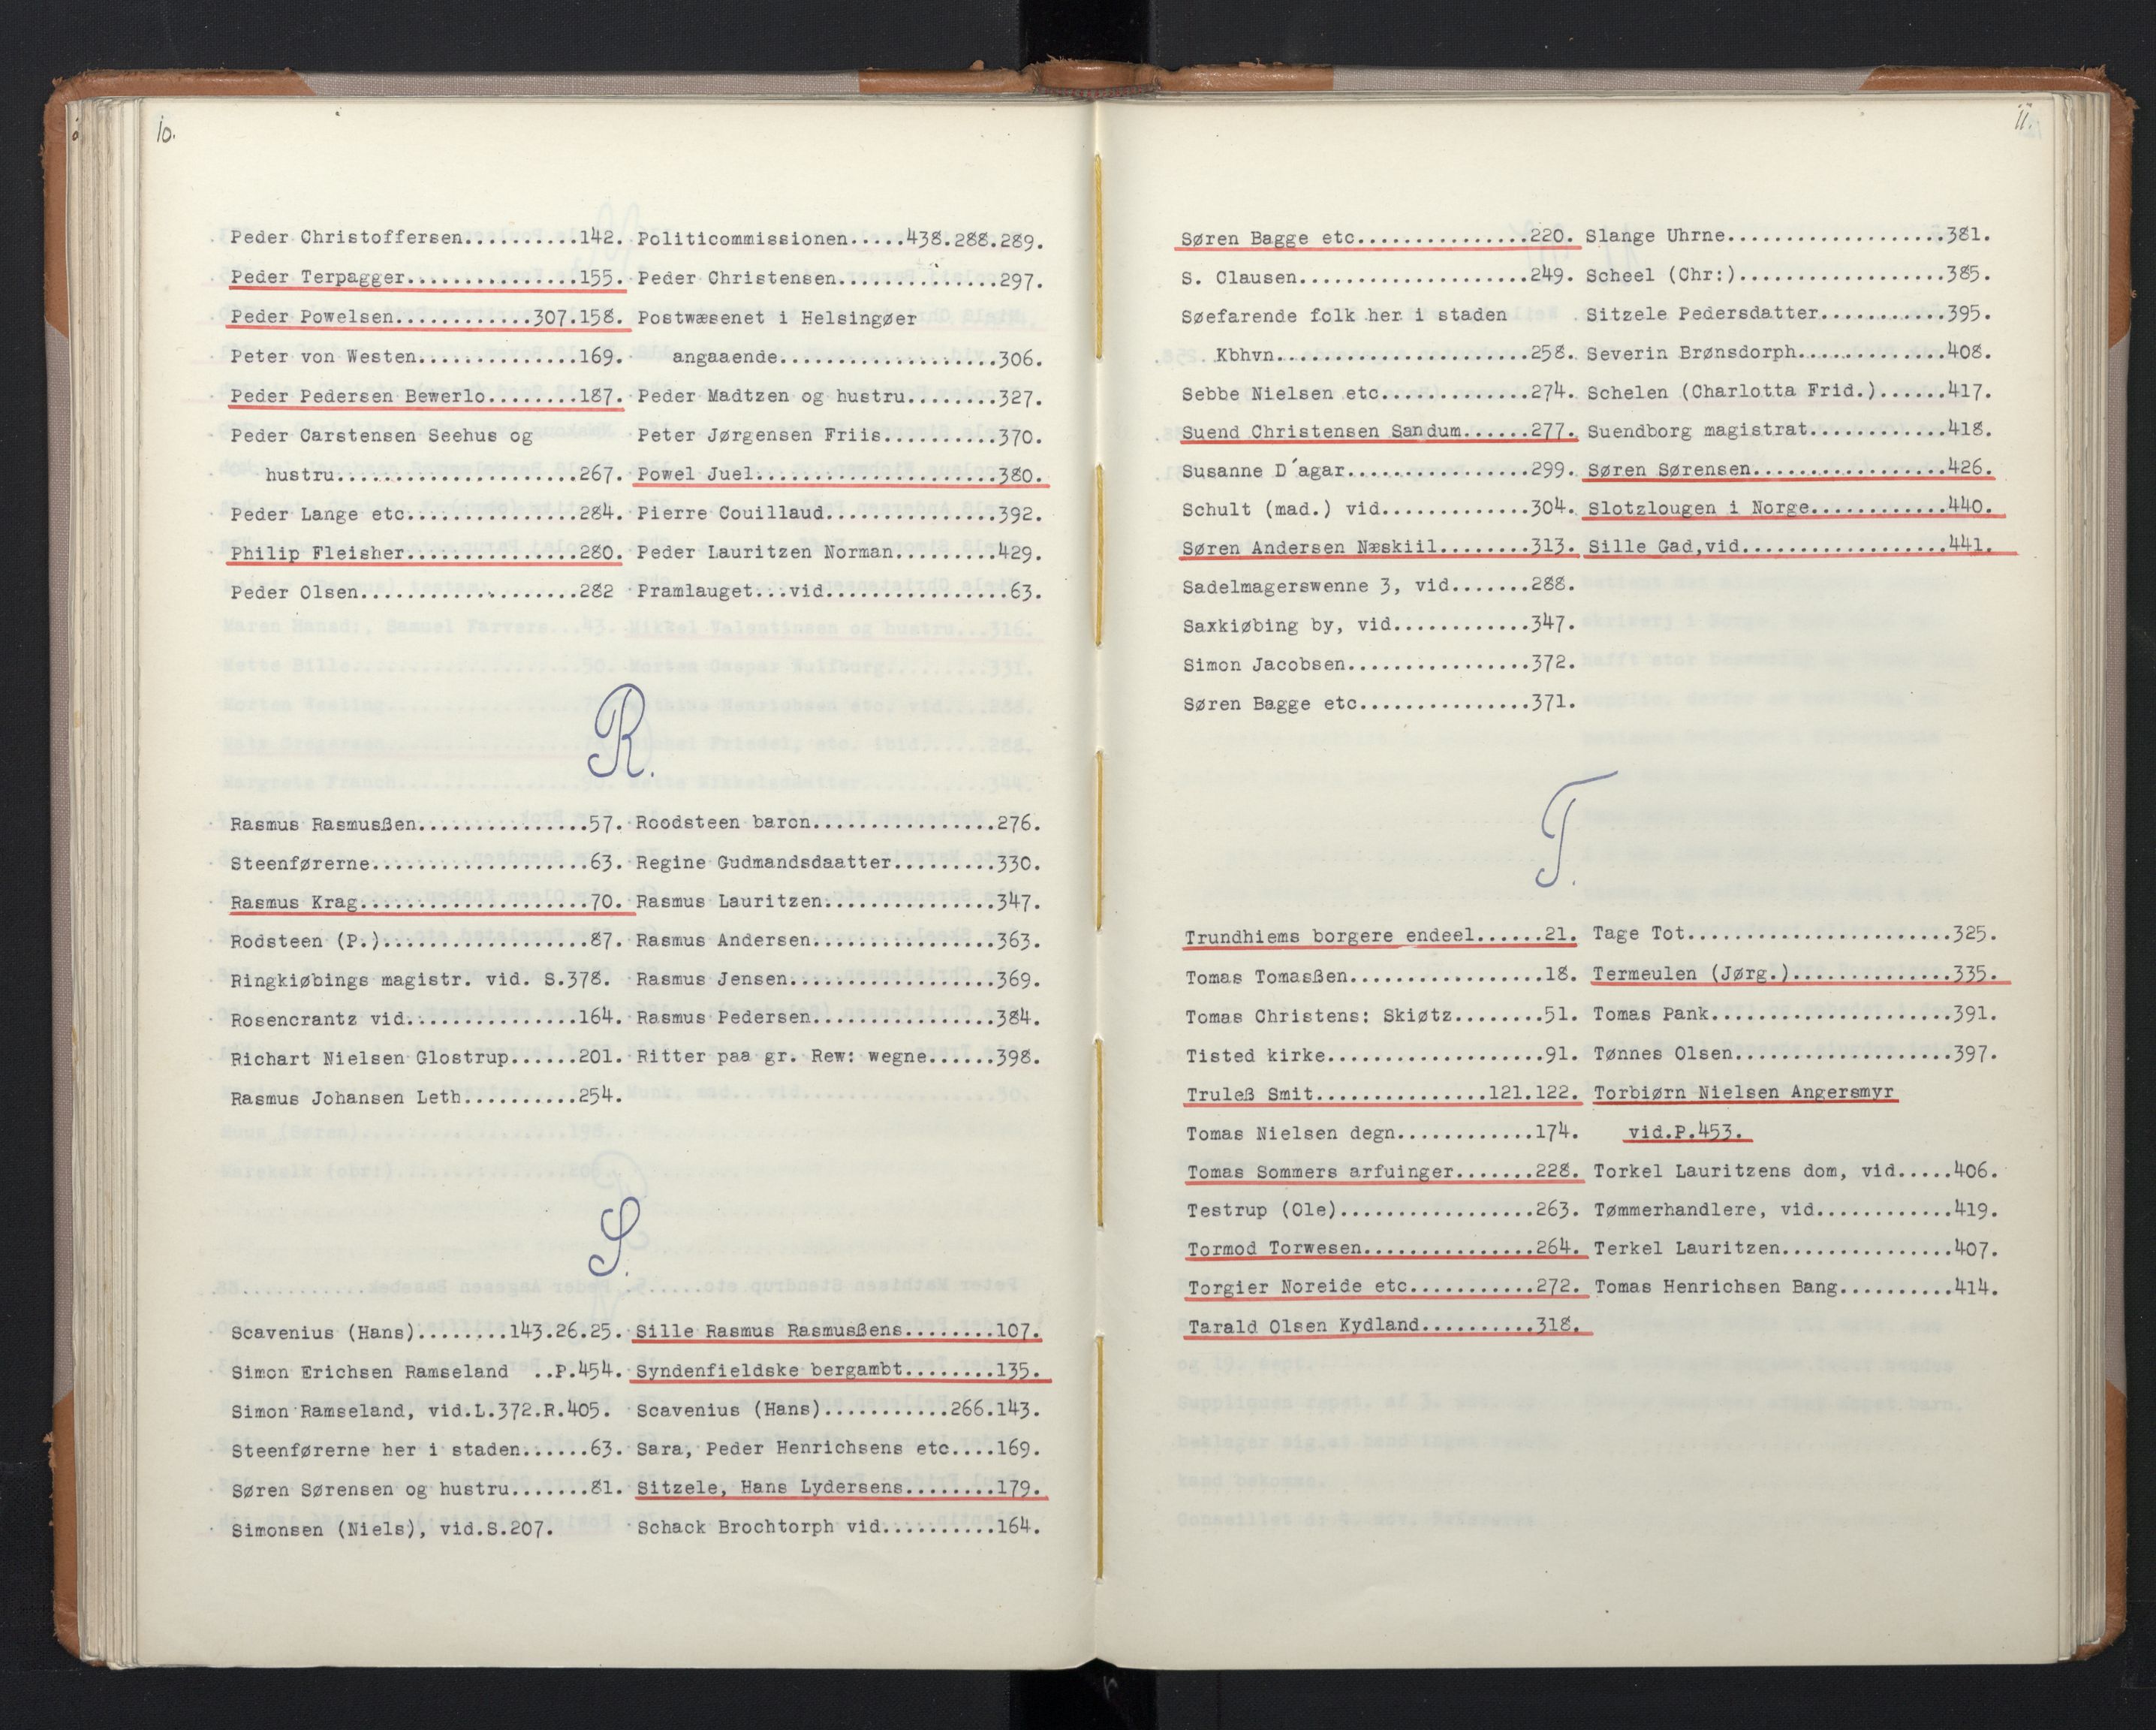 10.
Peder Christoffersen..........142.
Peder Terpagger...............155.
Peder Powelsen............307.158.
Peter von Westen..............169.
Peder Pedersen Bewerlo........187.
Peder Carstensen Seehus og
hustru.....................267.
Peder Lange etc...............284.
Philip Fleisher...............280.
Peder Olsen...................282
Politicommissionen.....438.288.289.
Peder Christensen..............297.
Postwæsenet i Helsingøer
angaaende...................306.
Peder Madtzen og hustru........327.
Peter Jørgensen Friis..........370.
Powel Juel.....................380.
Pierre Couillaud...............392.
Peder Lauritzen Norman.........429.
Pramlauget...vid................63.
R.
Rasmus Rasmusßen...............57.
Steenførerne...................63.
Rasmus Krag....................70.
Rodsteen (P.)..................87.
Ringkiøbings magistr. vid. S.378.
Rosencrantz vid...............164.
Richart Nielsen Glostrup......201.
Rasmus Johansen Leth..........254.
Roodsteen baron................276.
Regine Gudmandsdaatter.........330.
Rasmus Lauritzen...............347.
Rasmus Andersen................363.
Rasmus Jensen..................369.
Rasmus Pedersen................384.
Ritter paa gr. Rew: wegne......398.
S.
Scavenius (Hans)........143.26.25.
Simon Erichsen Ramseland ..P.454.
Simon Ramseland, vid.L.372.R.405.
Steenførerne her i staden......63.
Søren Sørensen og hustru.......81.
Simonsen (Niels), vid.S.207.
Sille Rasmus Rasmusßens........107.
Syndenfieldske bergambt........135.
Scavenius (Hans)...........266.143.
Sara, Peder Henrichsens etc....169.
Sitzele, Hans Lydersens........179.
Schack Brochtorph vid..........164.
11.
Søren Bagge etc...............220.
S. Clausen....................249.
Søefarende folk her i staden
Kbhvn......................258.
Sebbe Nielsen etc.............274.
Suend Christensen Sandum......277.
Susanne D´agar................299.
Schult (mad.) vid.............304.
Søren Andersen Næskiil........313.
Sadelmagerswenne 3, vid.......288.
Saxkiøbing by, vid............347.
Simon Jacobsen................372.
Søren Bagge etc...............371.
Slange Uhrne...................381.
Scheel (Chr:)..................385.
Sitzele Pedersdatter...........395.
Severin Brønsdorph.............408.
Schelen (Charlotta Frid.)......417.
Suendborg magistrat............418.
Søren Sørensen.................426.
Slotzlougen i Norge............440.
Sille Gad,vid..................441.
T.
Trundhiems borgere endeel......21.
Tomas Tomasßen.................18.
Tomas Christens: Skiøtz........51.
Tisted kirke...................91.
Truleß Smit...............121.122.
Tomas Nielsen degn............174.
Tomas Sommers arfuinger.......228.
Testrup (Ole).................263.
Tormod Torwesen...............264.
Torgier Noreide etc...........272.
Tarald Olsen Kydland..........318.
Tage Tot.......................325.
Termeulen (Jørg.)..............335.
Tomas Pank.....................391.
Tønnes Olsen...................397.
Torbiørn Nielsen Angersmyr
vid.P.453.
Torkel Lauritzens dom, vid.....406.
Tømmerhandlere, vid............419.
Terkel Lauritzen...............407.
Tomas Henrichsen Bang..........414.